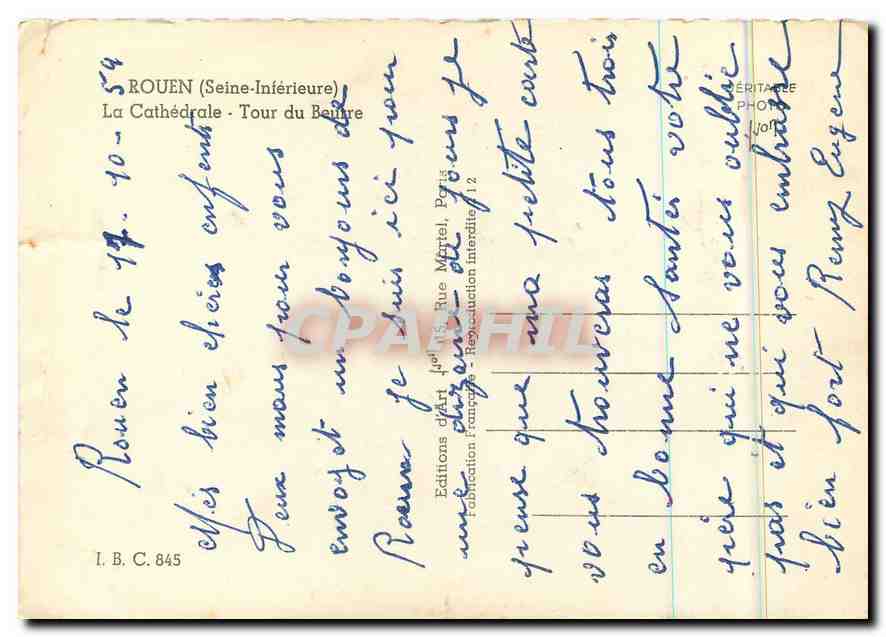 ROUEN (Seine-Inférieure)
La Cathédrale - Tour du Beurre
VÉRITABLE
PHOTO
I. B. C. 845
Editions d'Art 15, Rue Martel, Paris
Fabrication Française - Reproduction interdite 12
CPAPHIL
Rouen le 17-10-59
Mes bien chères enfents
Deux mots pour vous
envoyet un bonjours de
Rouen je suis ici pour
une dizaine de jours je
pense que ma petite carte
vous trouveras tous trois
en bonne santés votre
père qui ne vous oublie
pas et qui vous embrasse
bien fort Remy Eugene